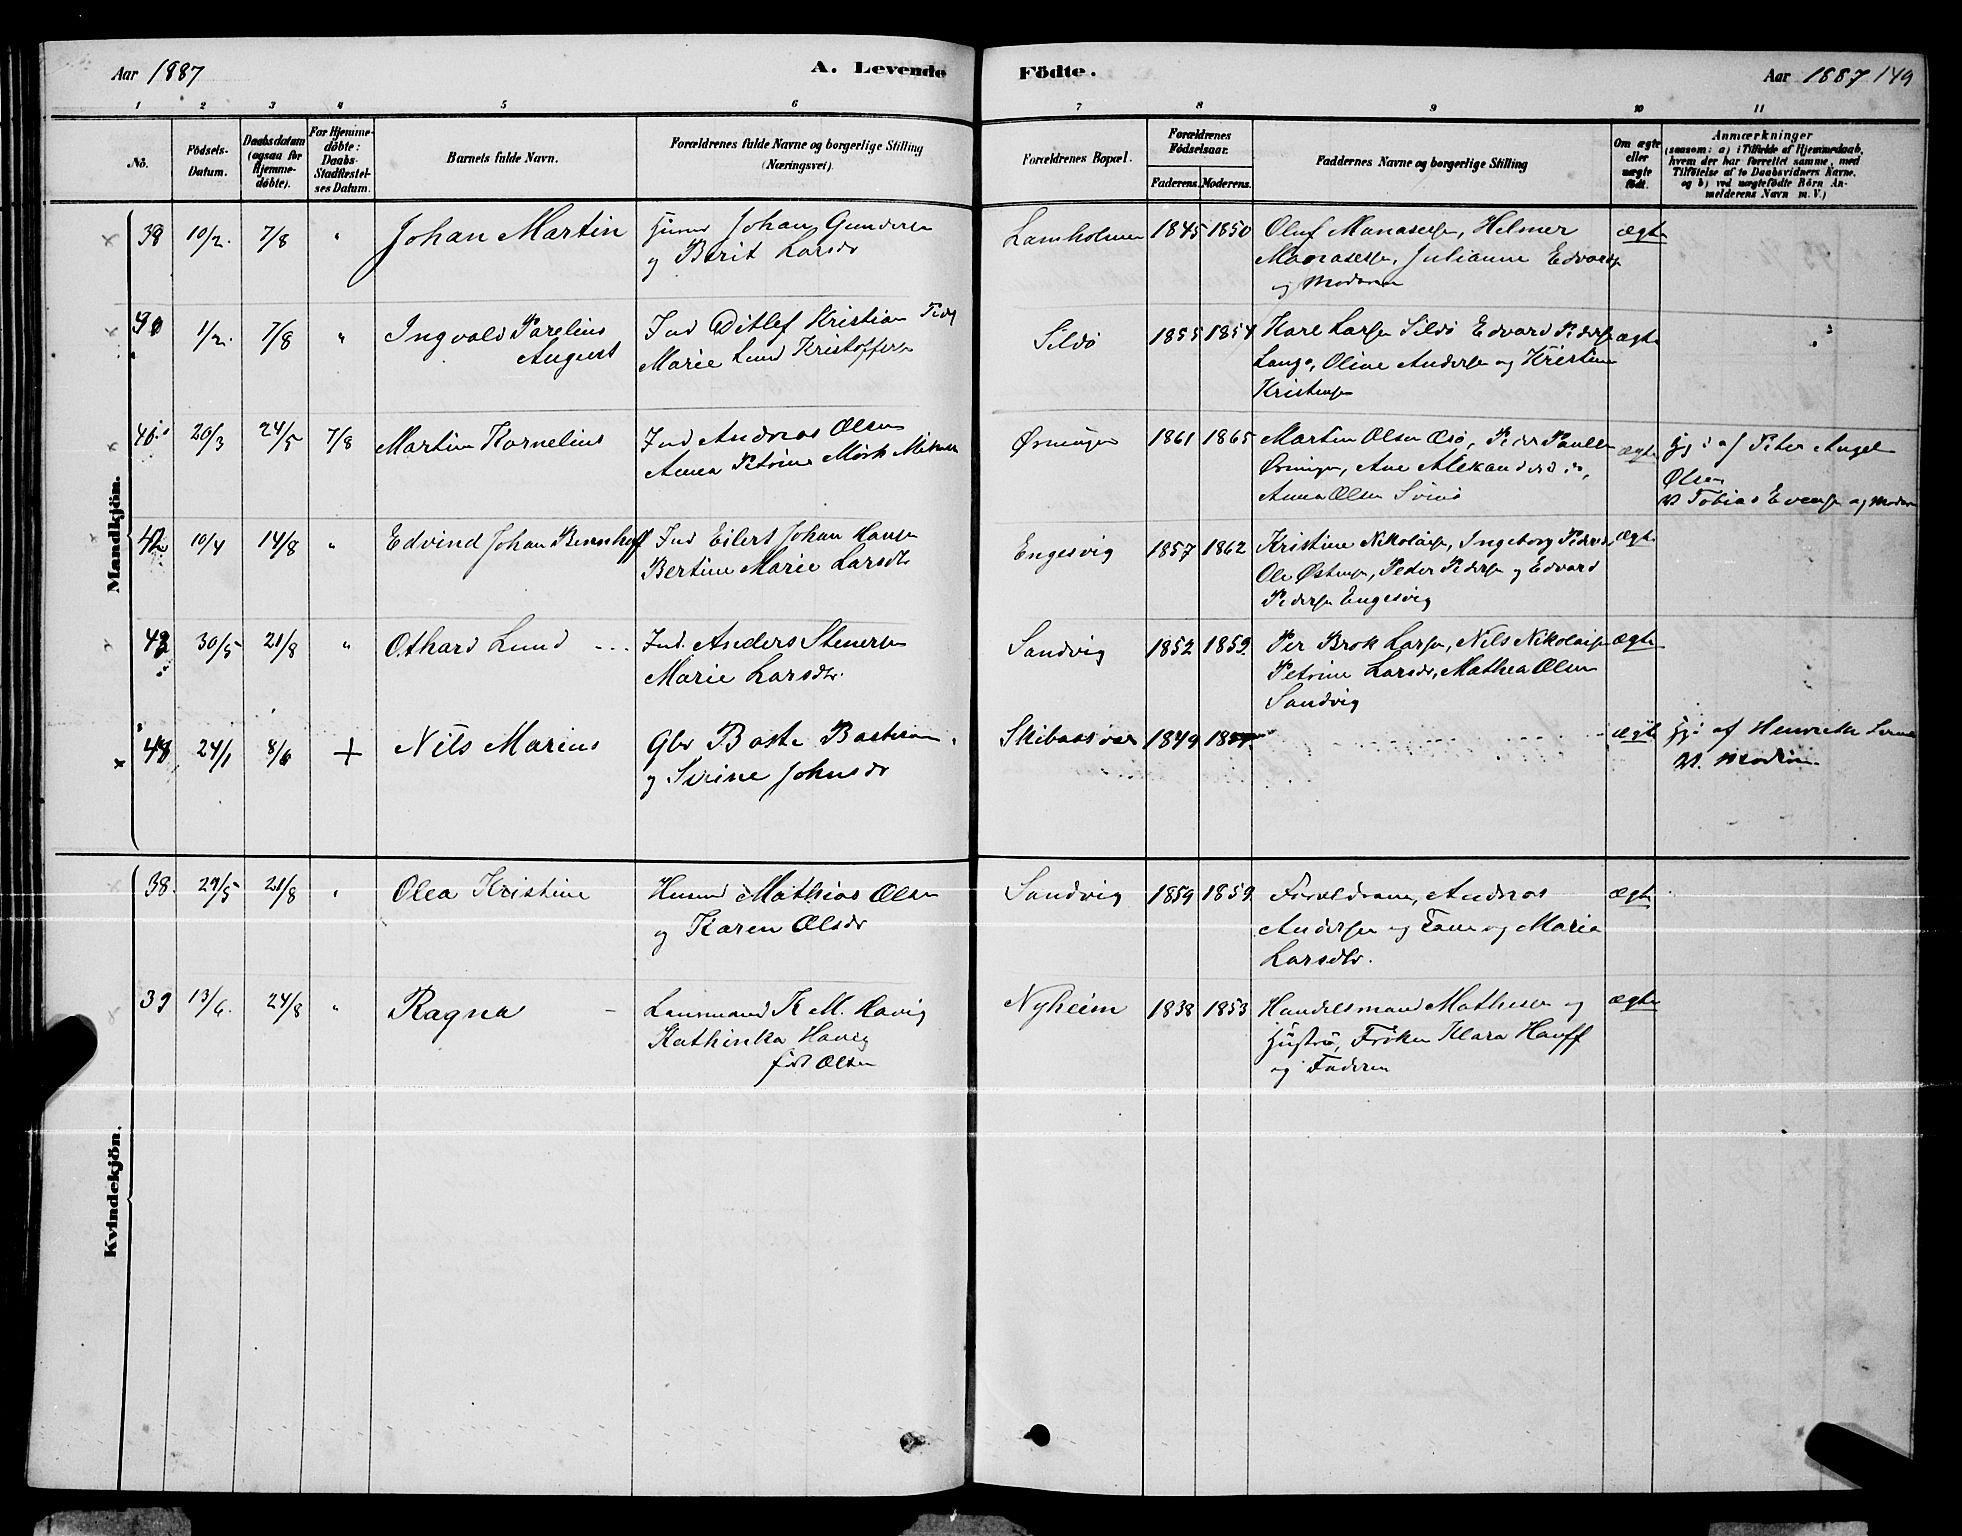 Aar 1887
A. Levende Födte.
Aar 1887 149
1 2 3 4 5 6 7 8 9 10 11
No.
Födsels-Datum.
Daabsdatum (ogsaa for Hjemme-döbte).
For Hjemme-döbte: Daabs-Stadfæstel-ses Datum.
Barnets fulde Navn.
Forældrenes fulde Navne og borgerlige Stilling (Næringsvei).
Forældrenes Bopæl.
Forældrenes Födselsaar.
Faderens. Moderens.
Faddernes Navne og borgerlige Stilling
Om ægte eller uægte födt.
Anmærkninger
(saasom: a) i Tilfælde af Hjemmedaab,
hvem der har forrettet samme, med
Tilföielse af to Daabsvidners Navne.
og b) ved uægtefödte Börn An-
melderens Navn m. V.)
Mandkjön.
10/2. 7/8 " Johan Martin
Johan Gundersen
og Berit Larsdr
Lamholmen 1845 1850
Oluf Manasesen, Helmer
Manasesen, Julianne Edvards
og Moderen
ægte
1/2. 7/8 " Ingvald Parelius
August
Ind Ditlef Kristian
Marie Lund Kristoffersen
Sildö 1855 1854
Kare Larsen Sildö Edvard Pedersen
Langö, Oline Andersen og Kristine
Kristensen
ægte
20/3 24/5 7/8 Martin Kornelius
Ind Andreas Olsen
Anna Petrine Mörk
Örningen 1861 1865
Martin Olsen Æsö, Peder Paulsen
Örningen, Ane Alexanders do,
Anna Olsen Svinö
ægte
hj d af Peter Angel
Olsen
V Tobias Evensen og Moderen
42 10/4 14/8 " Edvind Johan Bernhoff
Ind Eilert Johan Hansen
Bertine Marie Larsdtr
Engesvig 1857 1862
Kristine Nikolaisen, Ingeborg Peders
Ole Östensen, Peder Pedersen og Edvard
Pedersen Engesvig
ægte
30/5 21/8 " Othard Lund
Ind. Anders Stenersen
Marie Larsdtr.
Sandvig 1852 1859
Per Brok Larsen, Nils Nikolaisen
Petrine Larsdr, Mathea Olsen
Sandvig
ægte
24/1 8/6 + Nils Marius
Gbr Baste Bastiansen
og Sirine Johnsdr
Skibaasvær 1849
ægte
hjd af Henrette
V. Moderen
Kvindekjön.
38. 29/5 21/8 " Olea Kristine
Husmd Mathias Olsen
og Karen Olsdr
Sandvig 1859 1859
Forældrene, Andreas
Andersen og Fam og Maria
Larsdtr.
ægte
39 13/6. 24/8 " Ragna
Lensmand K M. Havig
Kathinka Havig
föd Olsen
Nyheim 1838 1853
Handelsmand Mathisen og
Hustru, Fröken Klara Hauff
og Faderen
ægte